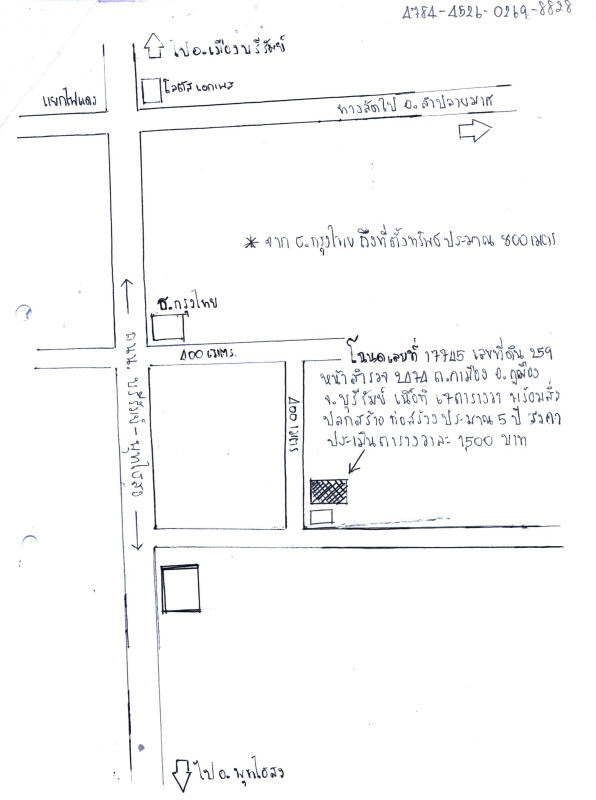 4784-4526-0269-8828
ไป อ.เมืองบุรีรัมย์
โลตัส เอกเพส
แยกไฟแดง
ทางลัดไป อ.ลำปลายมาศ
* จาก ธ.กรุงไทย ถึงที่ตั้งทรัพย์ ประมาณ 800 เมตร
ธ.กรุงไทย
400 เมตร.
โฉนดเลขที่ 17745 เลขที่ดิน 259
หน้าสำรวจ 2474 อ.คูเมือง
จ.บุรีรัมย์ เนื้อที่ 67 ตารางวา พร้อมสิ่ง
ปลูกสร้าง ก่อสร้าง ประมาณ 5 ปี ราคา
ประเมินตารางวาละ 1,500 บาท
400 เมตร
ถนน. บุรีรัมย์-พุทไธสง
ไป อ.พุทไธสง